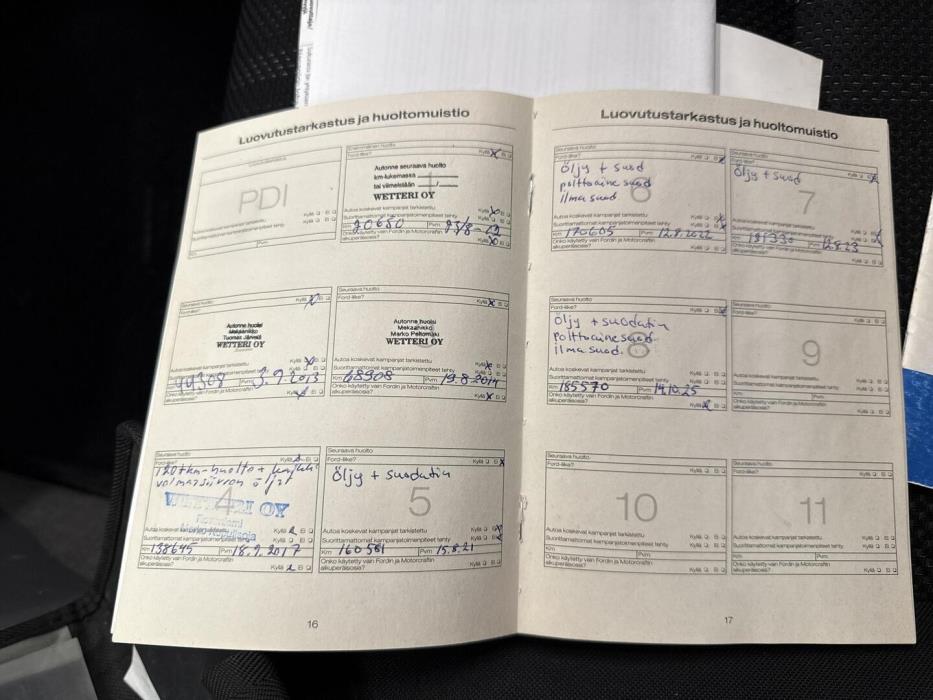 Luovutustarkastus ja huoltomuistio
PDI
Autoa koskevat kampanjat tarkistettu
Kyllä Ei
Suorittamattomat kampanjatoimenpiteet tehty
Km Pvm
Ford-liike?
Kyllä X Ei
Autonne seuraava huolto
km-lukemassa
tai viimeistään / /
WETTERI OY
Autoa koskevat kampanjat tarkistettu
Suorittamattomat kampanjatoimenpiteet tehty
Km Pvm
Onko käytetty vain Fordin ja Motorcraftin
alkuperäisosia?
Kyllä X Ei
Seuraava huolto
Ford-like?
Kyllä X Ei
Autonne huolsi
Mekaanikko
Tuomas Järvelä
WETTERI OY
Autoa koskevat kampanjat tarkistettu
Suorittamattomat kampanjatoimenpiteet tehty
Km 44308 Pvm 3.9.2013
Onko käytetty vain Fordin ja Motorcraftin
alkuperäisosia?
Seuraava huolto
Ford-like?
Kyllä X Ei
Autonne huolsi
Mekaanikko
Marko Peltomäki
WETTERI OY
Autoa koskevat kampanjat tarkistettu
Suorittamattomat kampanjatoimenpiteet tehty
Km 68908 Pvm 19.8.2014
Onko käytetty vain Fordin ja Motorcraftin
alkuperäisosia?
Kyllä X Ei
Seuraava huolto
Ford-like?
120tkm-huolto +
4
WETTERI OY
Autoa koskevat kampanjat tarkistettu
Suorittamattomat kampanjatoimenpiteet tehty
Km 138645 Pvm 18.9.2017
Onko käytetty vain Fordin ja Motorcraftin
alkuperäisosia?
Kyllä Ei
Seuraava huolto
Ford-like?
Öljy + suodatin
5
Autoa koskevat kampanjat tarkistettu
Suorittamattomat kampanjatoimenpiteet tehty
Km 160581 Pvm 15.8.21
Onko käytetty vain Fordin ja Motorcraftin
alkuperäisosia?
Kyllä Ei
16
Luovutustarkastus ja huoltomuistio
Seuraava huolto
Ford-like?
Öljy + suod
polttoaine suod
ilma suod
6
Autoa koskevat kampanjat tarkistettu
Suorittamattomat kampanjatoimenpiteet tehty
Km 170605 Pvm 12.8.2022
Onko käytetty vain Fordin ja Motorcraftin
alkuperäisosia?
Kyllä Ei
Seuraava huolto
Ford-like?
Öljy + suod
7
Autoa koskevat kampanjat tarkistettu
Suorittamattomat kampanjatoimenpiteet tehty
Km Pvm
Onko käytetty vain Fordin ja Motorcraftin
alkuperäisosia?
Kyllä Ei
Seuraava huolto
Ford-like?
Öljy + suodatin
polttoaine suod.
ilma suod.
8
Autoa koskevat kampanjat tarkistettu
Suorittamattomat kampanjatoimenpiteet tehty
Km 185570 Pvm 14.10.25
Onko käytetty vain Fordin ja Motorcraftin
alkuperäisosia?
Kyllä Ei
Seuraava huolto
Ford-like?
Kyllä Ei
9
Autoa koskevat kampanjat tarkistettu
Kyllä Ei
Suorittamattomat kampanjatoimenpiteet tehty
Kyllä Ei
Km Pvm
Onko käytetty vain Fordin ja Motorcraftin
alkuperäisosia?
Kyllä Ei
Seuraava huolto
Ford-like?
Kyllä Ei
10
Autoa koskevat kampanjat tarkistettu
Kyllä Ei
Suorittamattomat kampanjatoimenpiteet tehty
Kyllä Ei
Km Pvm
Onko käytetty vain Fordin ja Motorcraftin
alkuperäisosia?
Kyllä Ei
Seuraava huolto
Ford-like?
Kyllä Ei
11
Autoa koskevat kampanjat tarkistettu
Kyllä Ei
Suorittamattomat kampanjatoimenpiteet tehty
Kyllä Ei
Km Pvm
Onko käytetty vain Fordin ja Motorcraftin
alkuperäisosia?
Kyllä Ei
17